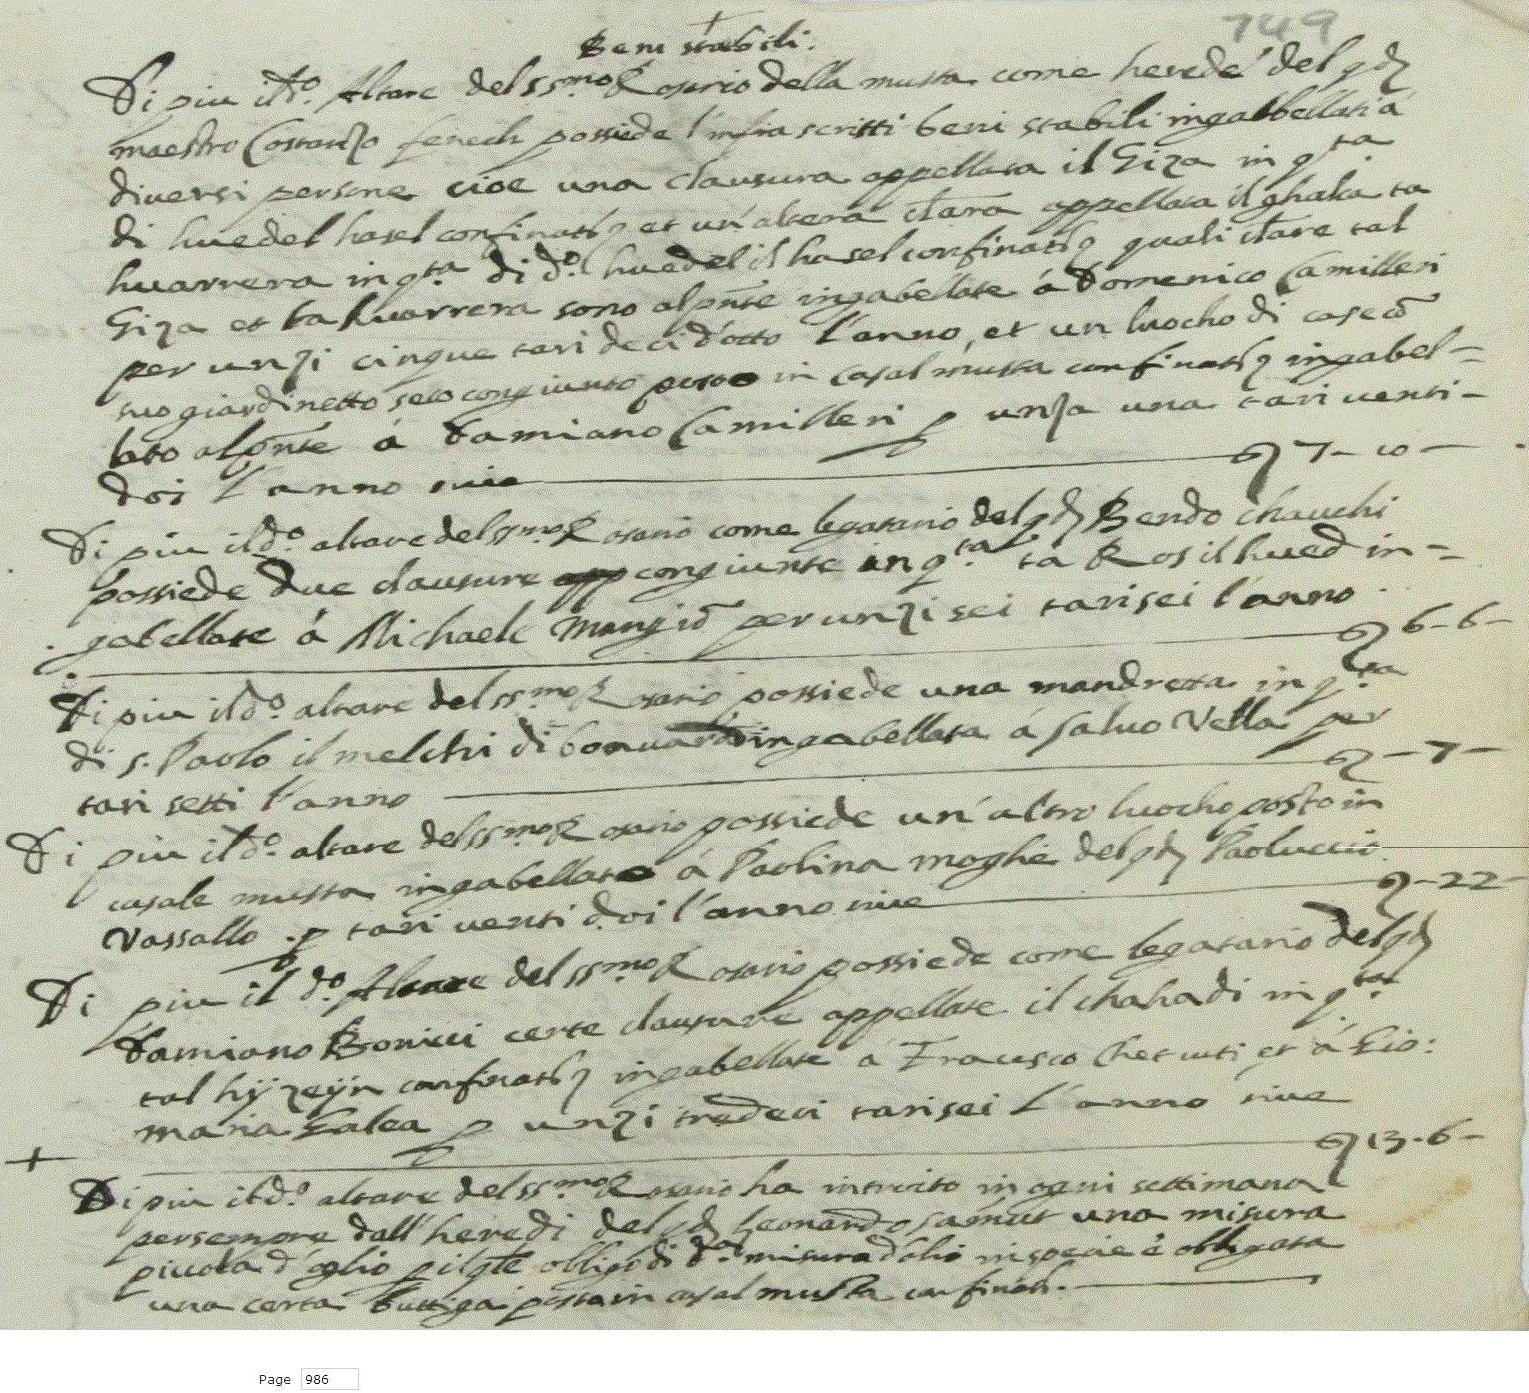 749
Beni stabili.
Di piu il d.º Altare del ss.mo Rosario della musta come herede del qd
maestro Costanzo fenech possiede l'infrascritti beni stabili ingabbellati à
diversi persone cioe una clausura appellata il Giza in q.ta
di hued el hasel confinati et un' altera appellata il ghaka ta
huarrera in q.ta di d.º hued el il hasel confinati quali tal
Giza et ta huarrera sono al pnte ingabellate á Domenico Camilleri
per unzi cinque tari deci d'otto l'anno, et un luocho di case cō
suo giardinetto seco congiunto posto in casal musta confinati ingabel=
lato al pnte á Damiano Camilleri p unza una tari venti-
doi l'anno 7-10-
Di piu il d.º altare del ss.mo Rosario come legatario del qd Bendo chauchi
possiede due clausure app congiunte in q.ta ta Ros il hued in=
gabellate á Michaele per unzi sei tari sei l'anno
6-6-
Di piu il d.º altare del ss.mo Rosario possiede una mandretta in q.ta
di S. Paolo il melchi di ingabellata á Salvo Vella per
tari setti l'anno -7-
Di piu il d.º altare del ss.mo Rosario possiede un' altro luocho posto in
casale musta ingabellato á Paolina moghe del qd Paoluccio
Vassallo p tari venti doi l'anno -22-
Di piu il d.º Altare del ss.mo Rosario possiede come legatario del qd
Damiano Bonnici certe clausure appellate il chahadi in q.ta
tal confinati ingabellate á Francesco Checuti et á Gio:
maria Galea p unzi tredeci tari sei l'anno
13-6-
Di piu il d.º altare del ss.mo Rosario ha introito in ogni settimana
persempre dall' heredi del qd Leonardo Samut una misura
picciola d'oglio p il qle obligo di d.a misura d'olio in specie è obligata
una certa buttiga posta in casal musta confinati.
Page 986